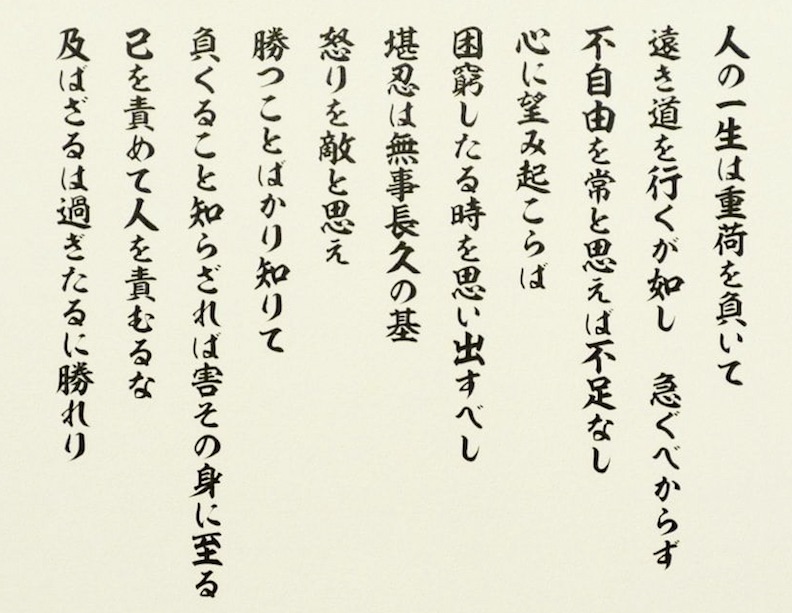 人の一生は重荷を負いて
遠き道を行くが如し　急ぐべからず
不自由を常と思えば不足なし
心に望み起こらば
困窮したる時を思い出すべし
堪忍は無事長久の基
怒りを敵と思え
勝つことばかり知りて
負くること知らざれば害その身に至る
己を責めて人を責むるな
及ばざるは過ぎたるに勝れり